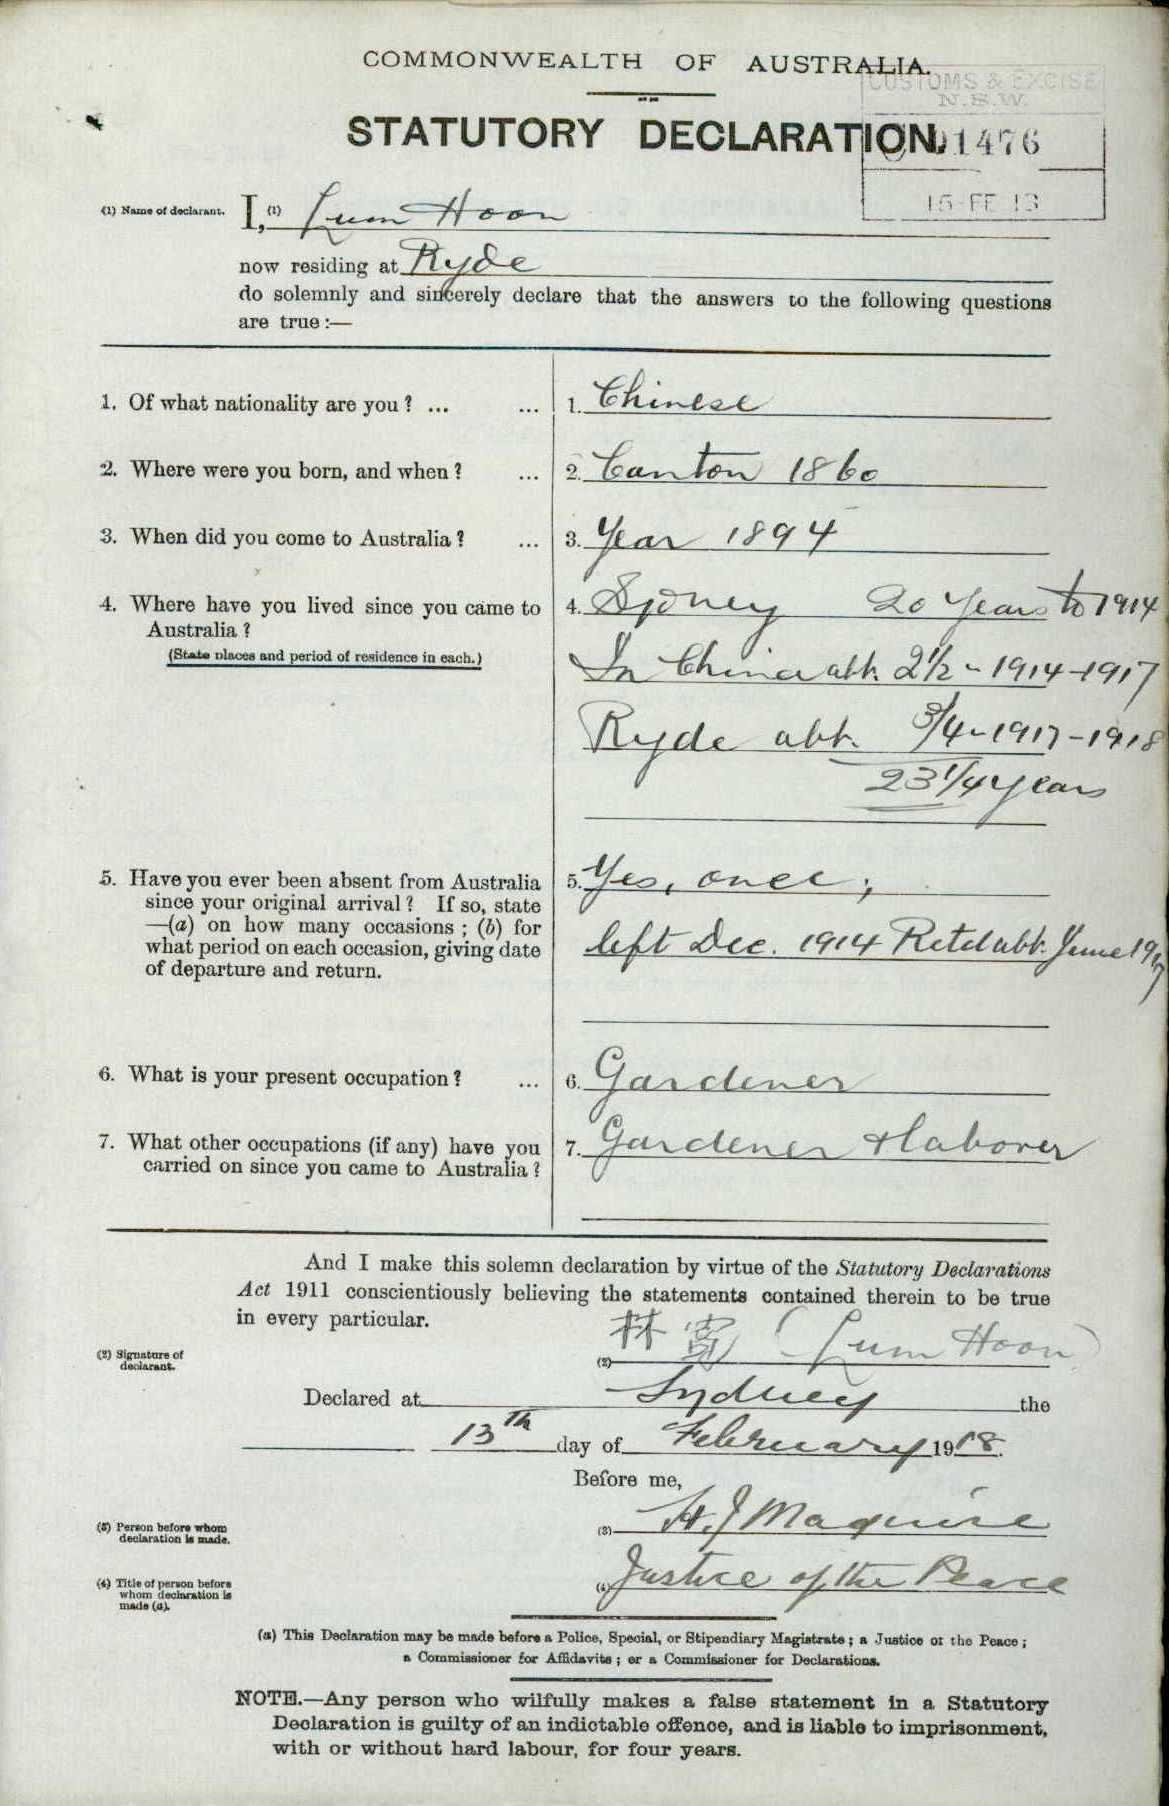 COMMONWEALTH OF AUSTRALIA.
CUSTOMS & EXCISE
N.S.W.
STATUTORY DECLARATION.
1476
15 FE 13
(1) Name of declarant.
I, (1) Lum Hoon
now residing at Ryde
do solemnly and sincerely declare that the answers to the following questions
are true:—
1. Of what nationality are you? ... ...
1. Chinese
2. Where were you born, and when? ...
2. Canton 1860
3. When did you come to Australia? ...
3. Year 1894
4. Where have you lived since you came to
Australia?
(State places and period of residence in each.)
4. Sydney 20 Years to 1914
In China abt. 2½ - 1914-1917
Ryde abt. 3/4 - 1917-1918
23 1/4 years
5. Have you ever been absent from Australia
since your original arrival? If so, state
—(a) on how many occasions; (b) for
what period on each occasion, giving date
of departure and return.
5. Yes, once;
left Dec. 1914 Retd abt. June 1917
6. What is your present occupation? ...
6. Gardener
7. What other occupations (if any) have you
carried on since you came to Australia?
7. Gardener & laborer
And I make this solemn declaration by virtue of the Statutory Declarations
Act 1911 conscientiously believing the statements contained therein to be true
in every particular.
(2) Signature of
declarant.
(2) 林寬 (Lum Hoon)
Declared at Sydney the
13th day of February 1918.
Before me,
(3) Person before whom
declaration is made.
(3) H. J Maguire
(4) Title of person before
whom declaration is
made (a).
(4) Justice of the Peace
(a) This Declaration may be made before a Police, Special, or Stipendiary Magistrate; a Justice of the Peace;
a Commissioner for Affidavits; or a Commissioner for Declarations.
NOTE.—Any person who wilfully makes a false statement in a Statutory
Declaration is guilty of an indictable offence, and is liable to imprisonment,
with or without hard labour, for four years.